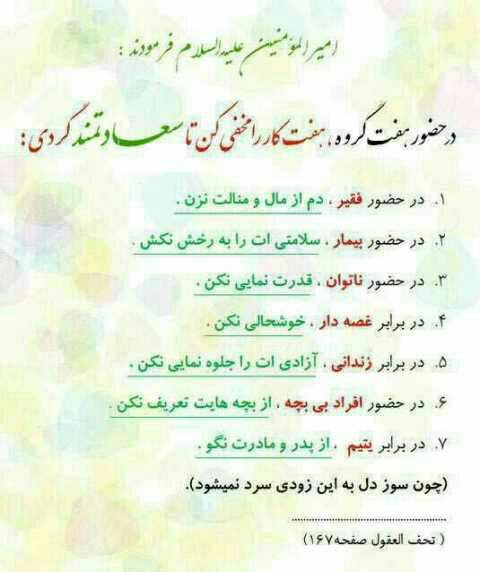 امیرالمؤمنین علیه السلام فرمودند :
در حضور هفت گروه، هفت کار را مخفی کن تا سعادتمند گردی:
۱. در حضور فقیر ، دم از مال و منالت نزن .
۲. در حضور بیمار ، سلامتی ات را به رخش نکش .
۳. در حضور ناتوان ، قدرت نمایی نکن .
۴. در برابر غصه دار ، خوشحالی نکن .
۵. در برابر زندانی ، آزادی ات را جلوه نمایی نکن .
۶. در حضور افراد بی بچه ، از بچه هایت تعریف نکن .
۷. در برابر یتیم ، از پدر و مادرت نگو .
(چون سوز دل به این زودی سرد نمیشود).
( تحف العقول صفحه۱۶۷)